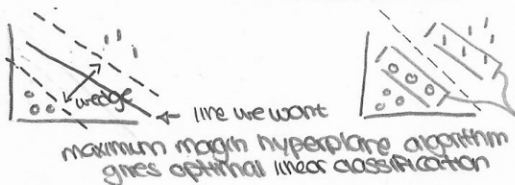 wedge
← line we want
maximum margin hyperplane algorithm
gives optimal linear classification